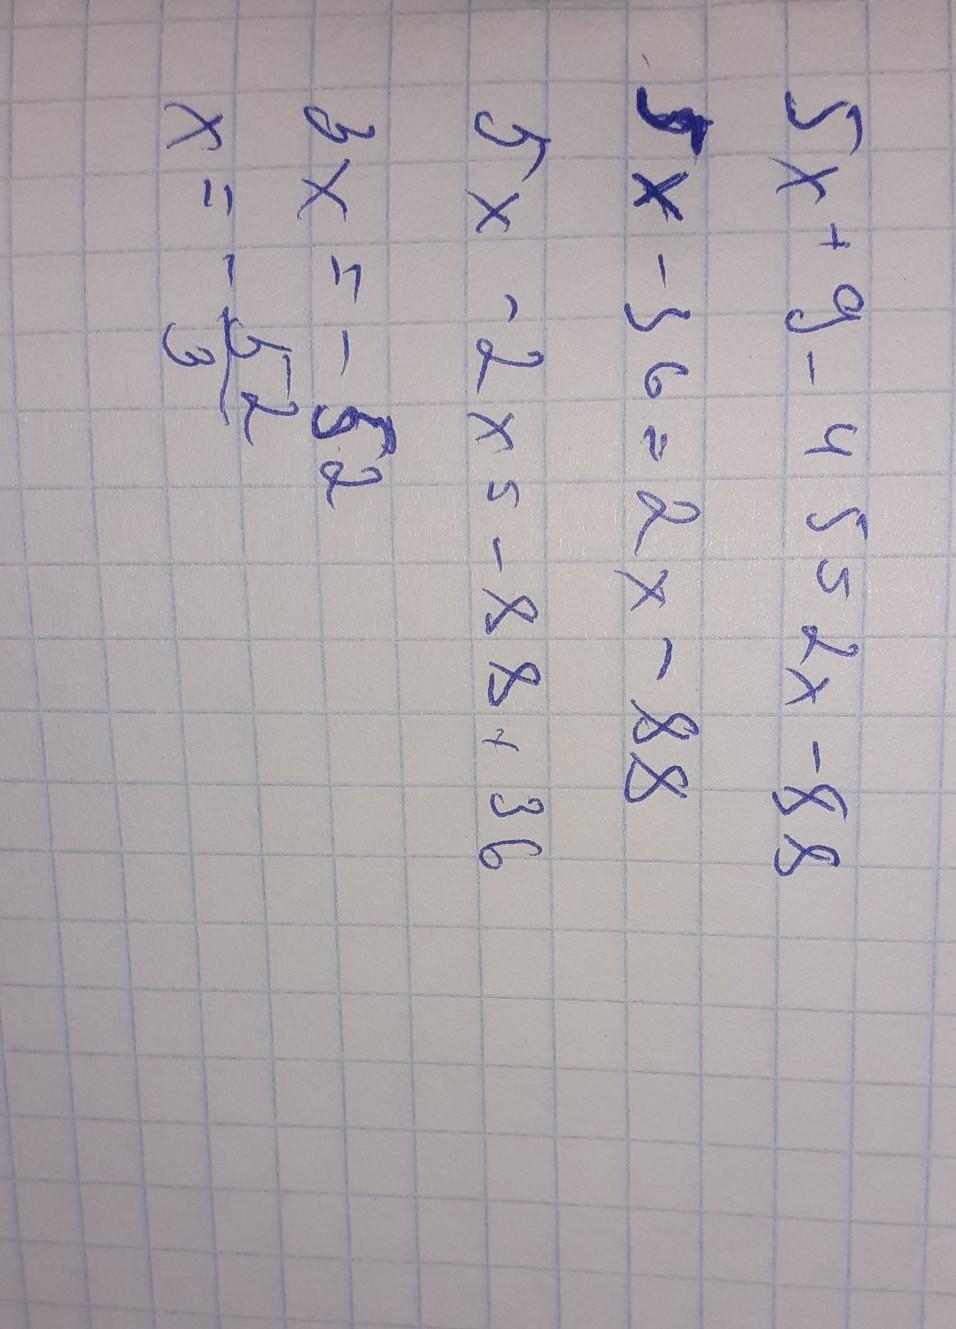 5x+9-45=2x-88
5x-36=2x-88
5x-2x=-88+36
3x=-52
x=-52/3